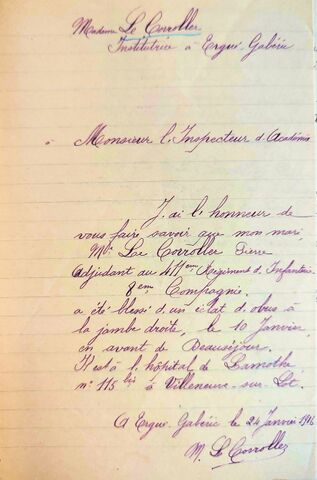 Madame Le Corroller
Institutrice à Ergué-Gabéric
à Monsieur l'Inspecteur d'Académie
J'ai l'honneur de
vous faire savoir que mon mari,
Mr Le Corroller Pierre
adjudant au 411eme Régiment d'Infanterie
8eme Compagnie,
a été blessé d'un éclat d'obus à
la jambe droite, le 10 Janvier,
en avant de Beauséjour.
Il est à l'hôpital de Lamothe
n° 115 bis à Villeneuve-sur-Lot.
A Ergué-Gabéric le 24 Janvier 1916
M. Le Corroller